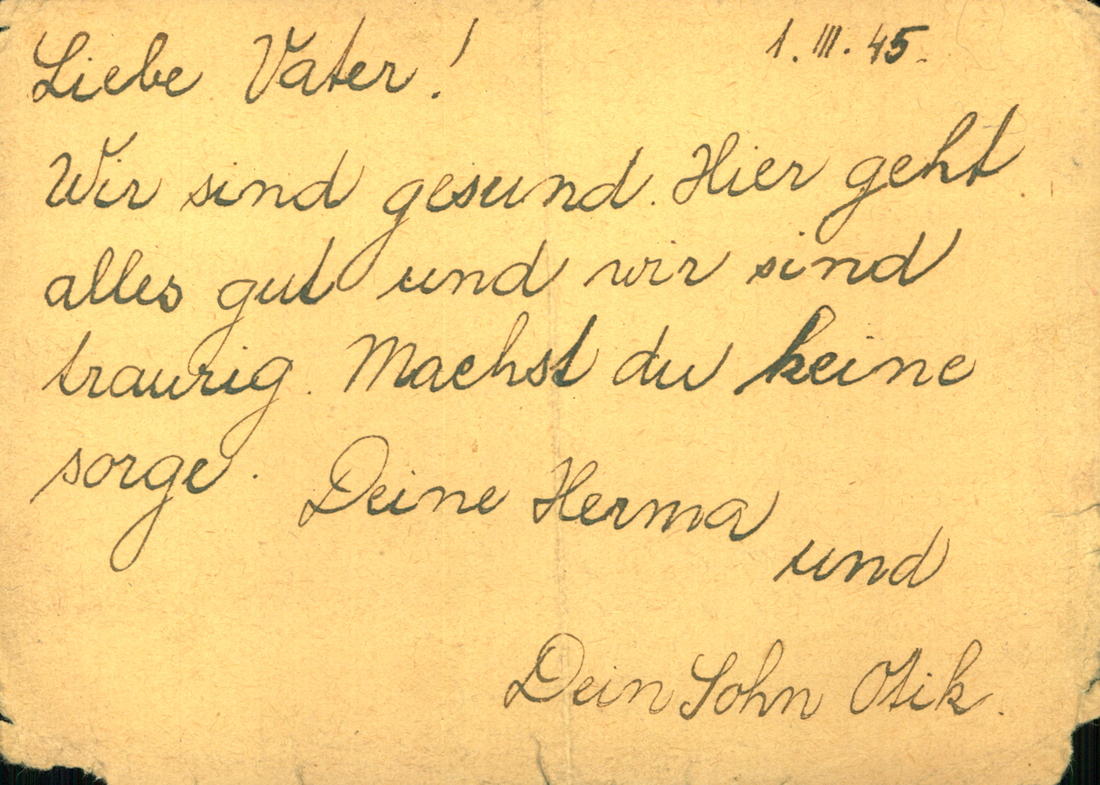 Liebe Vater! 1. III. 45.
Wir sind gesund. Hier geht
alles gut und wir sind
traurig. Machst du keine
sorge. Deine Herma
und
Dein Sohn Otik.